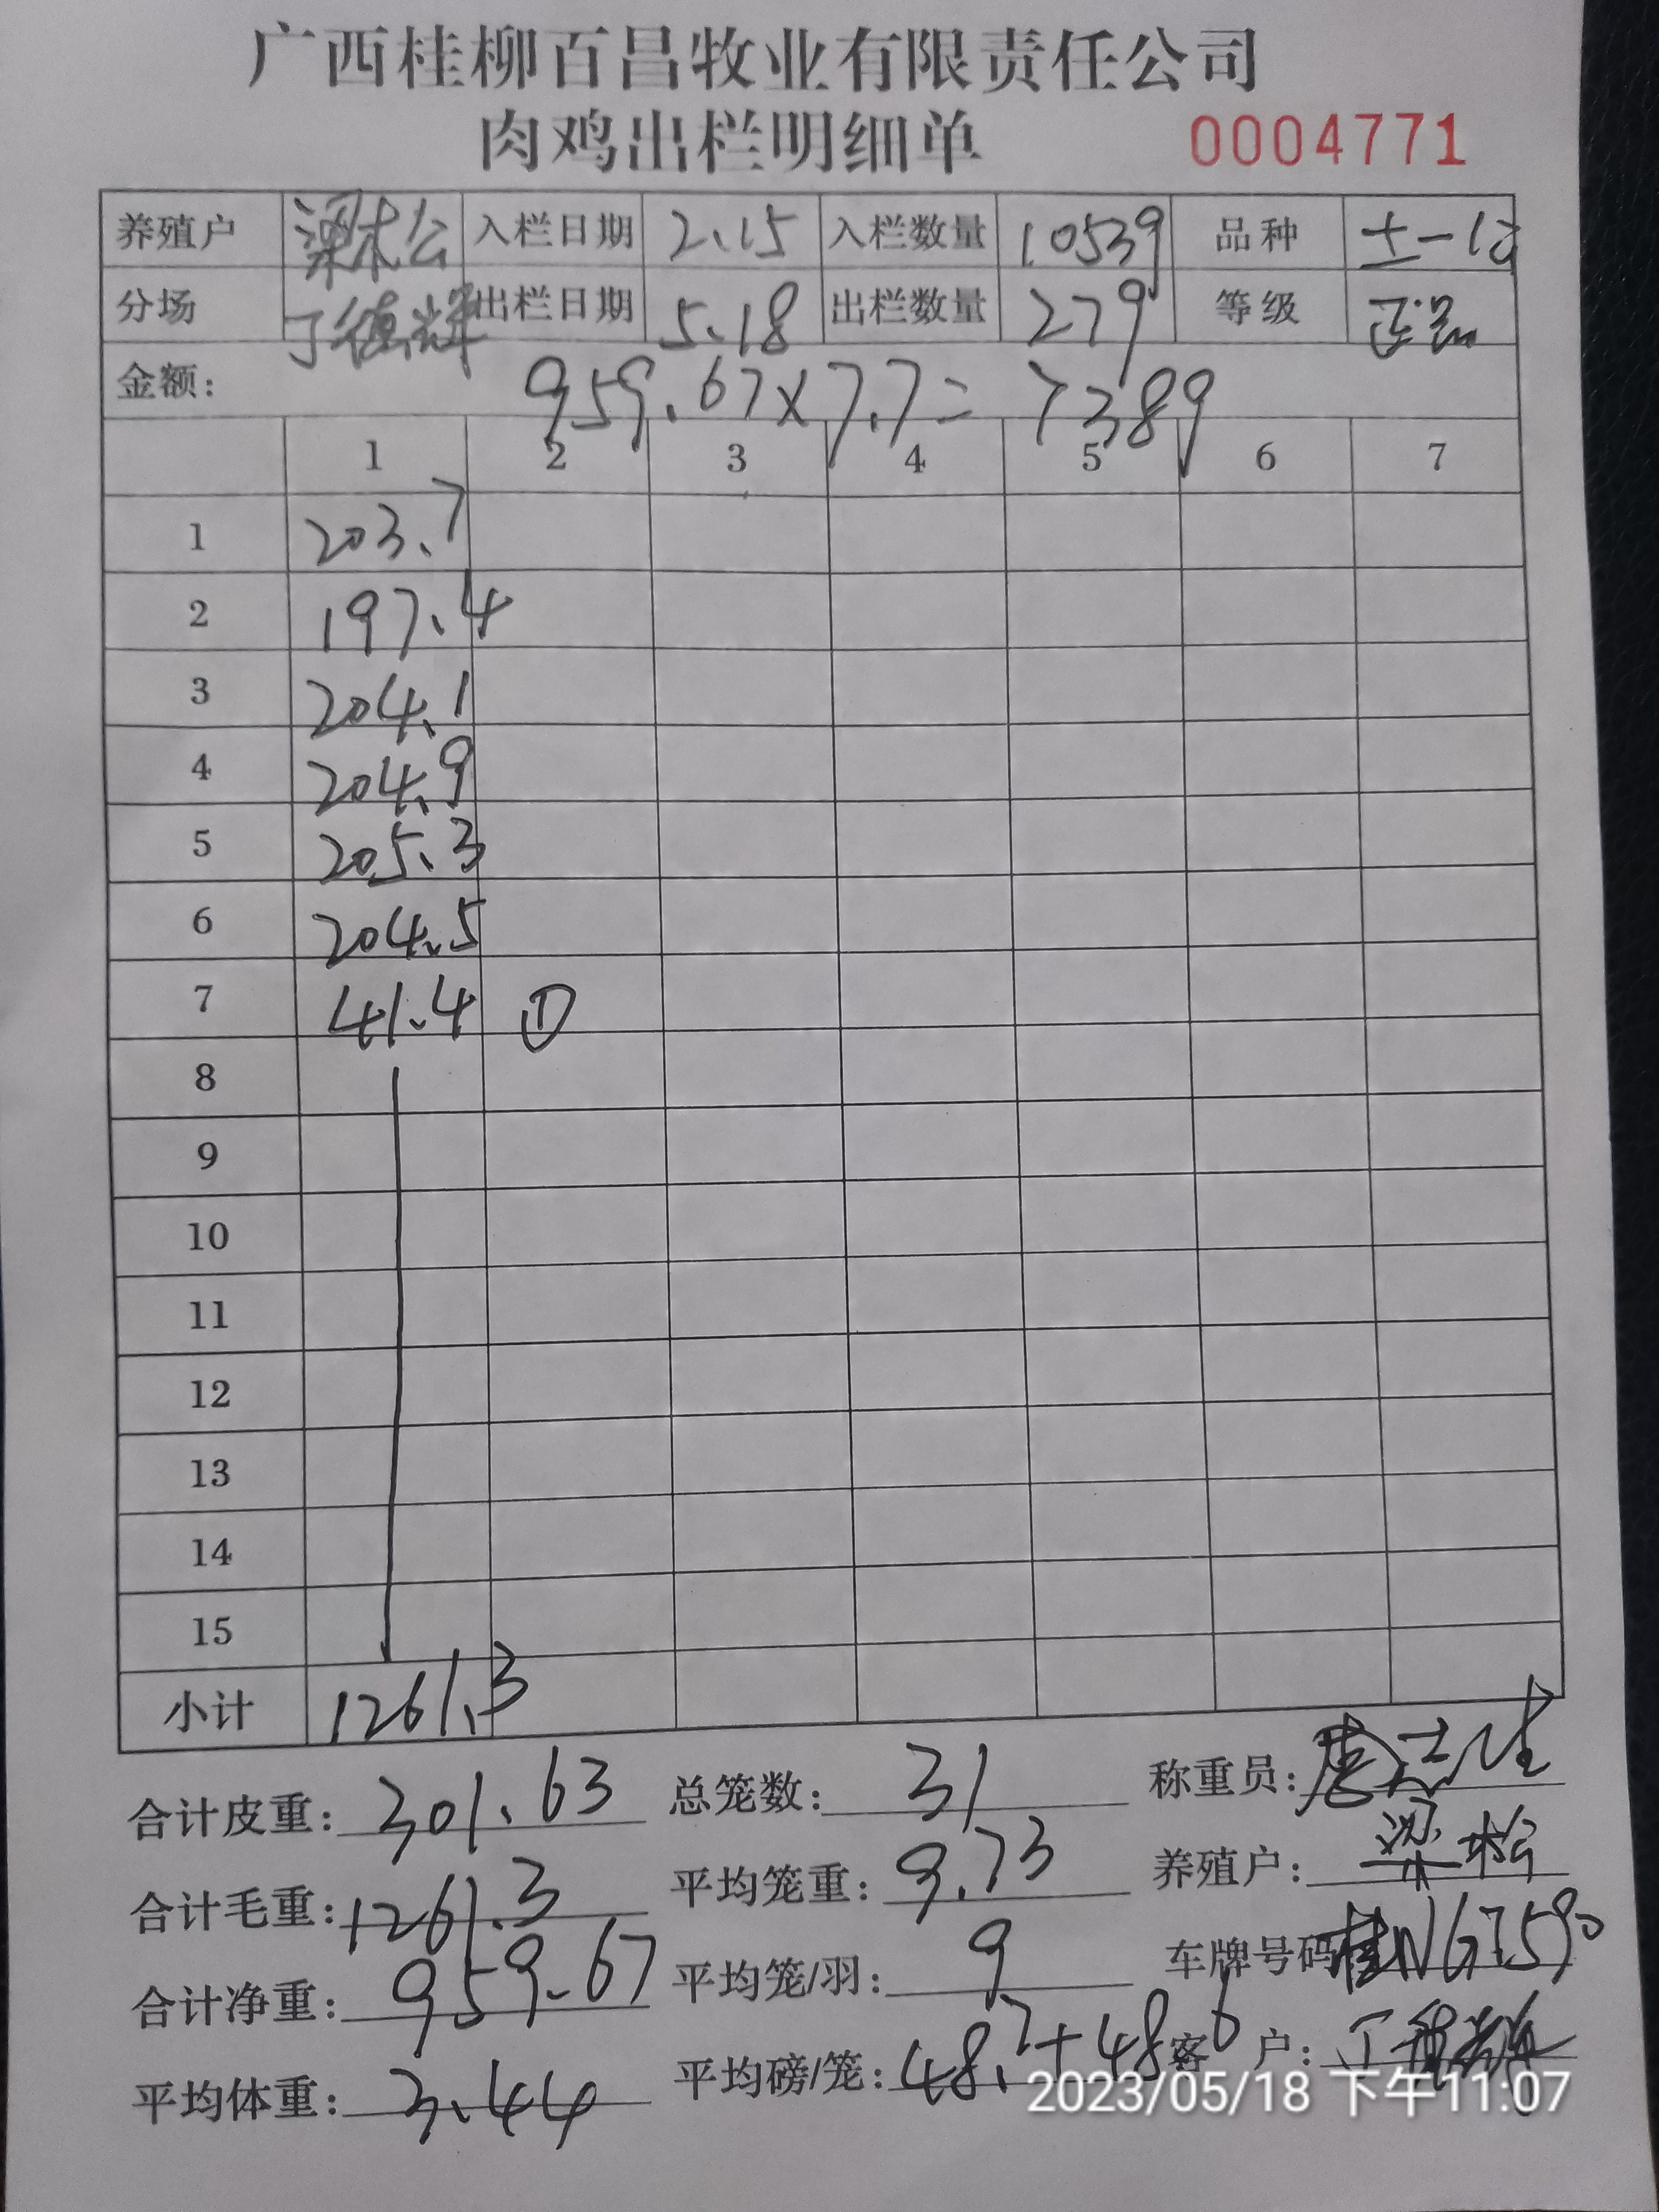 广西桂柳百昌牧业有限责任公司
肉鸡出栏明细单 0004771
养殖户 梁木公 入栏日期 2.15 入栏数量 10539 品种 土一
分场 丁德辉 出栏日期 5.18 出栏数量 279 等级
金额: 959.67×7.7=7389
1 2 3 4 5 6 7
1 203.7
2 197.4
3 204.1
4 204.9
5 205.3
6 204.5
7 41.4 ①
8
9
10
11
12
13
14
15
小计 1261.3
合计皮重: 301.63 总笼数: 31 称重员:
合计毛重: 1261.3 平均笼重: 9.73 养殖户: 梁
合计净重: 959.67 平均笼/羽: 9 车牌号码 桂NG7590
平均体重: 3.44 平均磅/笼: 48.7+48.6 客户: 丁德辉
2023/05/18 下午11:07